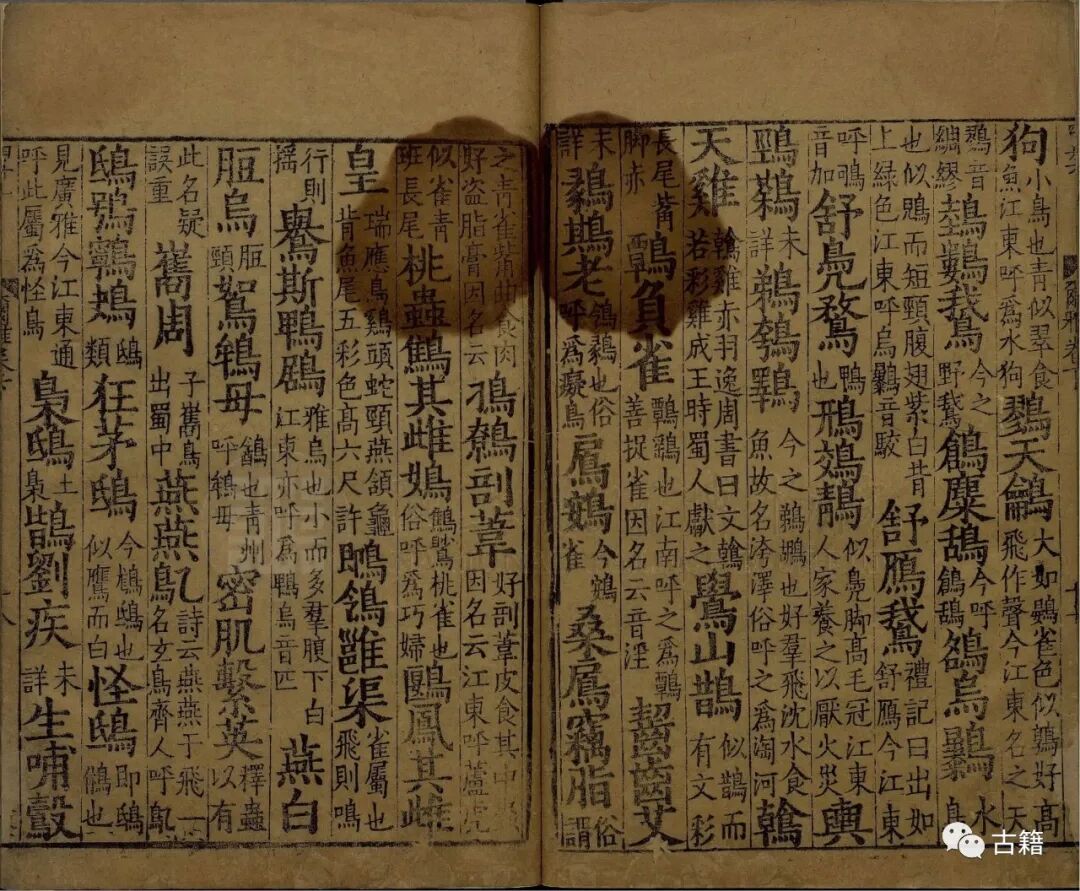 狗小鳥也青似翠食魚江東呼爲水狗鷚天鸙大如鷃雀色似鶉好高飛作聲今江東名之天
鷚音綢繆鵱鷜鵝今之野鵝鶬麋鴰今呼鶬鴰鵅烏鸔水鳥
也似鶂而短頸腹翅紫白背上綠色江東呼烏鸔音駮舒鴈鵝禮記曰出如舒鴈今江東
呼鳴音加舒鳧鶩鴨也鳽鵁鶄似鳧脚高毛冠江東人家養之以厭火災輿
鵛鷋未詳鵜鴮鸅今之鵜鶘也好羣飛沈水食魚故名洿澤俗呼之爲淘河鶾
天雞鶾雞赤羽逸周書曰文鶾若彩雞成王時蜀人獻之鷽山鵲似鵲而有文彩
長尾觜脚赤鷣負雀鷣鷂也江南呼之爲鷣善捉雀因名云音淫齧齒艾
未詳鶨鶀老鳹鶨也俗呼爲癡鳥鳸鴳今鴳雀桑鳸竊脂俗謂
之青雀觜曲食肉好盗脂膏因名云鳭鷯剖葦好剖葦皮食其中因名云江東呼蘆虎
似雀青班長尾桃蟲鷦其雌鴱鷦䳟桃雀也俗呼爲巧婦鶠鳳其雌
皇瑞應鳥雞頭蛇頸燕頷龜背魚尾五彩色高六尺許鶺鴒雝渠雀屬也飛則鳴
行則搖鸒斯鵯鶋雅烏也小而多羣腹下白江東亦呼爲鵯烏音匹燕白
脰烏脰頸鴽鴾母䳺也青州呼鴾母密肌繫英釋蟲以有
此名疑誤重巂周子巂鳥出蜀中燕燕鳦詩云燕燕于飛一名玄鳥齊人呼鳦
鴟鴞鸋鴂鴟類狂茅鴟今鵵鴟也似鷹而白怪鴟即鴟鵂也
見廣雅今江東通呼此屬爲怪鳥梟鴟土梟鶛劉疾未詳生哺鷇
古籍